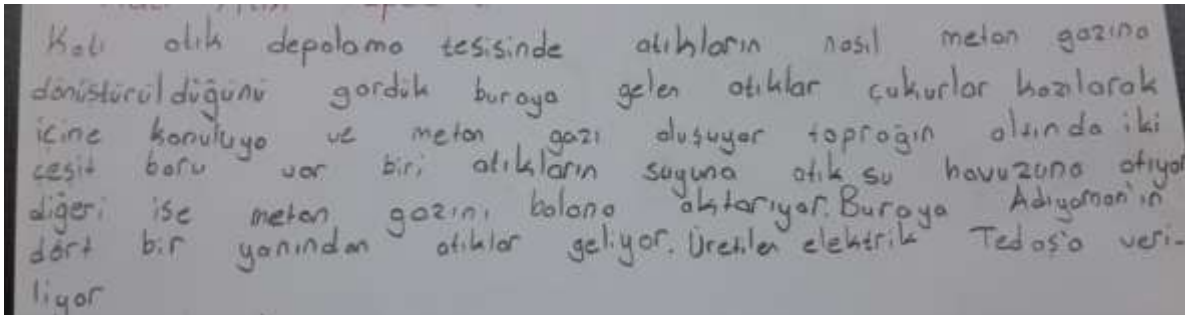 Katı atık depolama tesisinde atıkların nasıl metan gazına
dönüştürüldüğünü gördük buraya gelen atıklar çukurlar kazılarak
içine konuluyo ve metan gazı oluşuyor toprağın altında iki
çeşit boru var biri atıkların suyuna atık su havuzuna atıyor
diğeri ise metan gazını balona aktarıyor. Buraya Adıyaman'ın
dört bir yanından atıklar geliyor. Üretilen elektrik Tedaş'a veri-
liyor